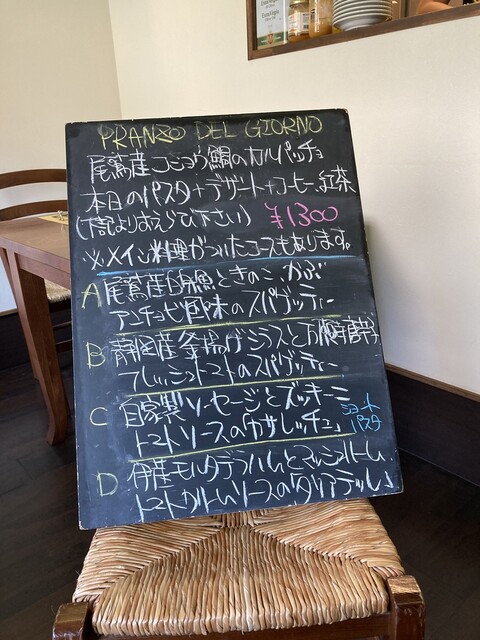 PRANZO DEL GIORNO
尾鷲産コショウ鯛のカルパッチョ
本日のパスタ+デザート+コーヒー、紅茶
(下記よりおえらび下さい) ¥1300
※メイン料理がついたコースもあります。
A 尾鷲産白身魚ときのこ、かぶ
アンチョビ風味のスパゲッティー
B 静岡産釜揚げシラスと万願寺唐辛子
フレッシュトマトのスパゲッティー
C 自家製ソーセージとズッキーニ
トマトソースのカサレッチェ
ショートパスタ
D 伊産モルタデラハムとマッシュルーム
トマトクリームソースのタリアテッレ